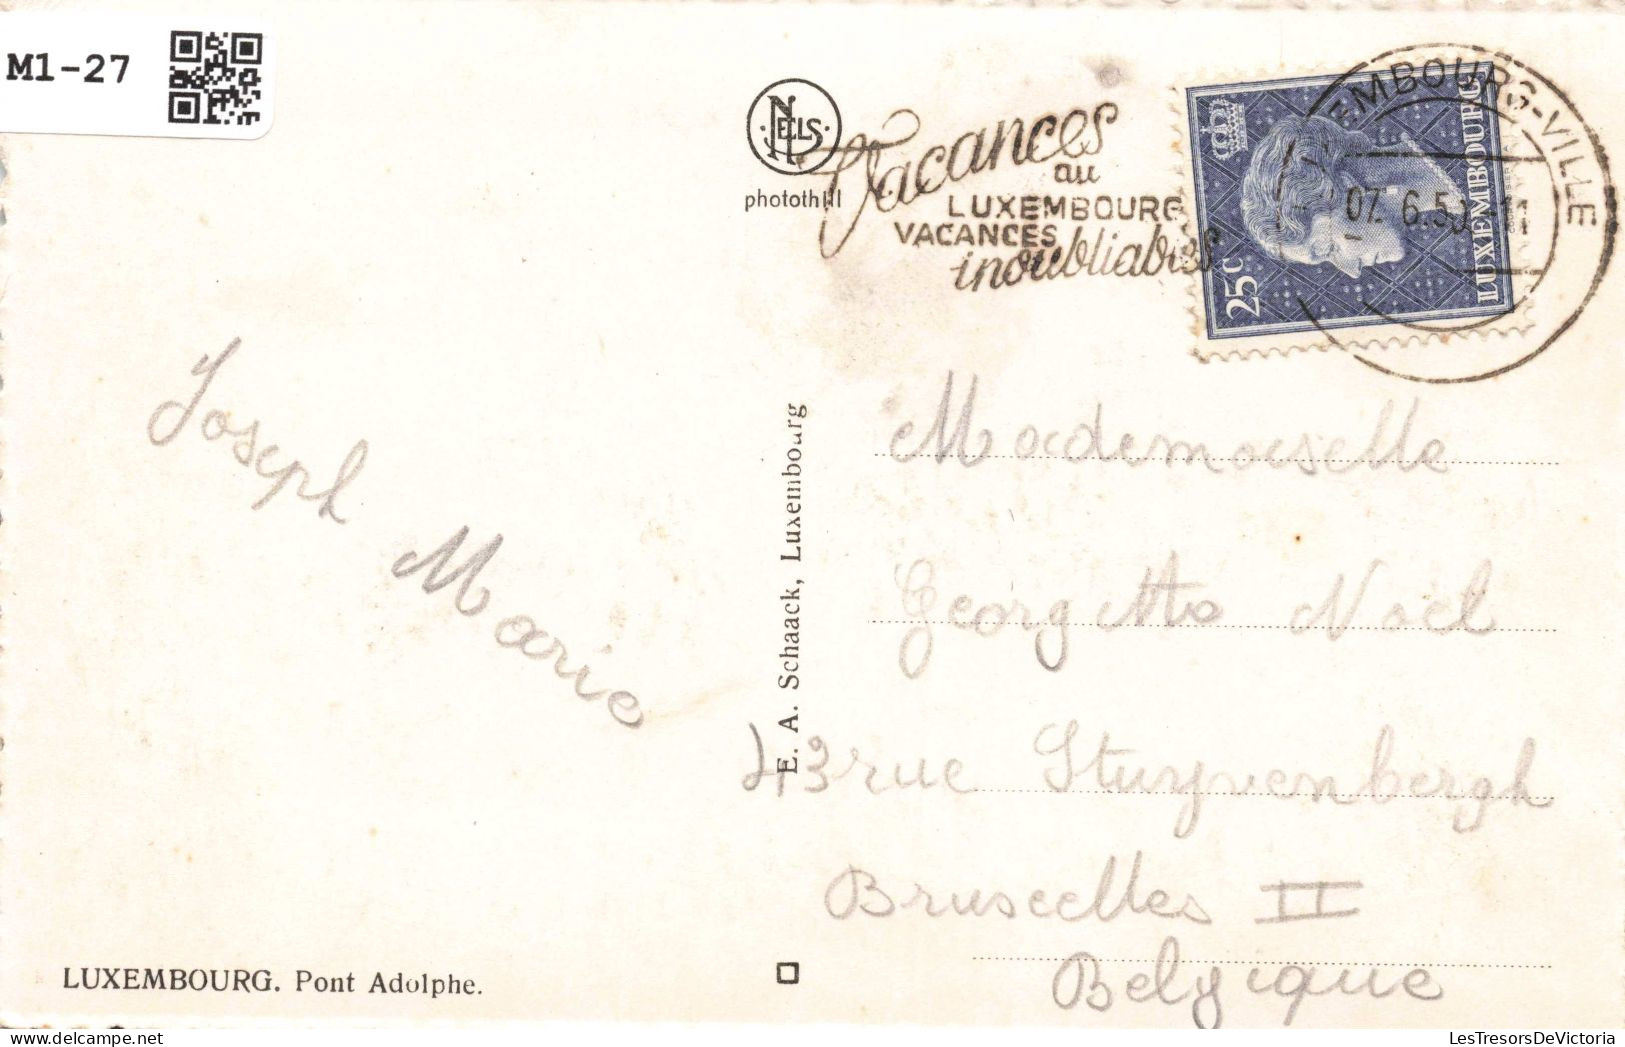 M1-27
NELS
photothill
Vacances
au
LUXEMBOURG
VACANCES
inoubliables
EMBOURG-VILLE
07. 6.50.-11
25 C
LUXEMBOURG
Joseph Marie
E. A. Schaack, Luxembourg
Mademoiselle
Georgette Noël
43 rue Stuyvenbergh
Bruxelles II
Belgique
LUXEMBOURG. Pont Adolphe.
LesTresorsDeVictoria